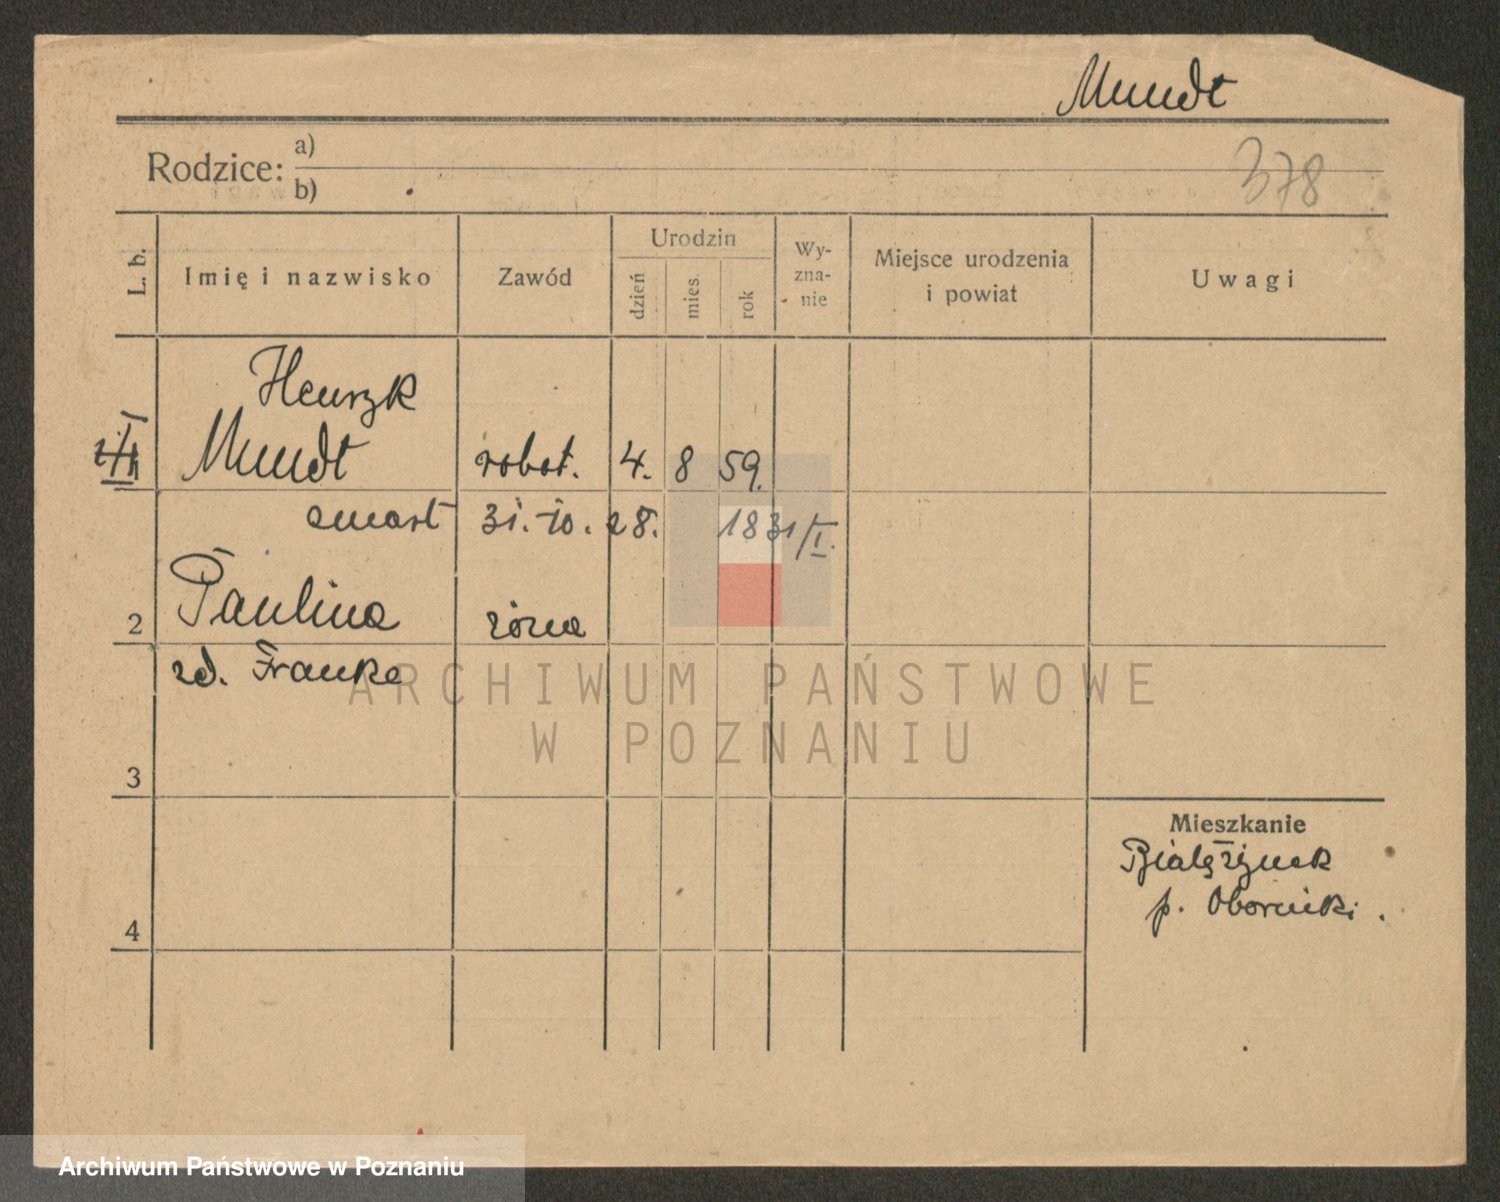 Mundt
Rodzice: a)
b)
378
L. b.
Imię i nazwisko
Zawód
Urodzin
dzień
mies.
rok
Wy-
zna-
nie
Miejsce urodzenia
i powiat
Uwagi
Henryk
Mundt robot. 4. 8 59.
zmarł 31.-10. 28. 18 31/I.
2 Paulina żona
zd. Franke
3
Mieszkanie
Białężynek
p. Oborniki.
4
ARCHIWUM PAŃSTWOWE
W POZNANIU
Archiwum Państwowe w Poznaniu